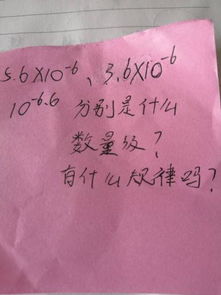 5.6×10⁻⁶、3.6×10⁻⁶
10⁻⁶·⁶ 分别是什么
数量级?
有什么规律吗?